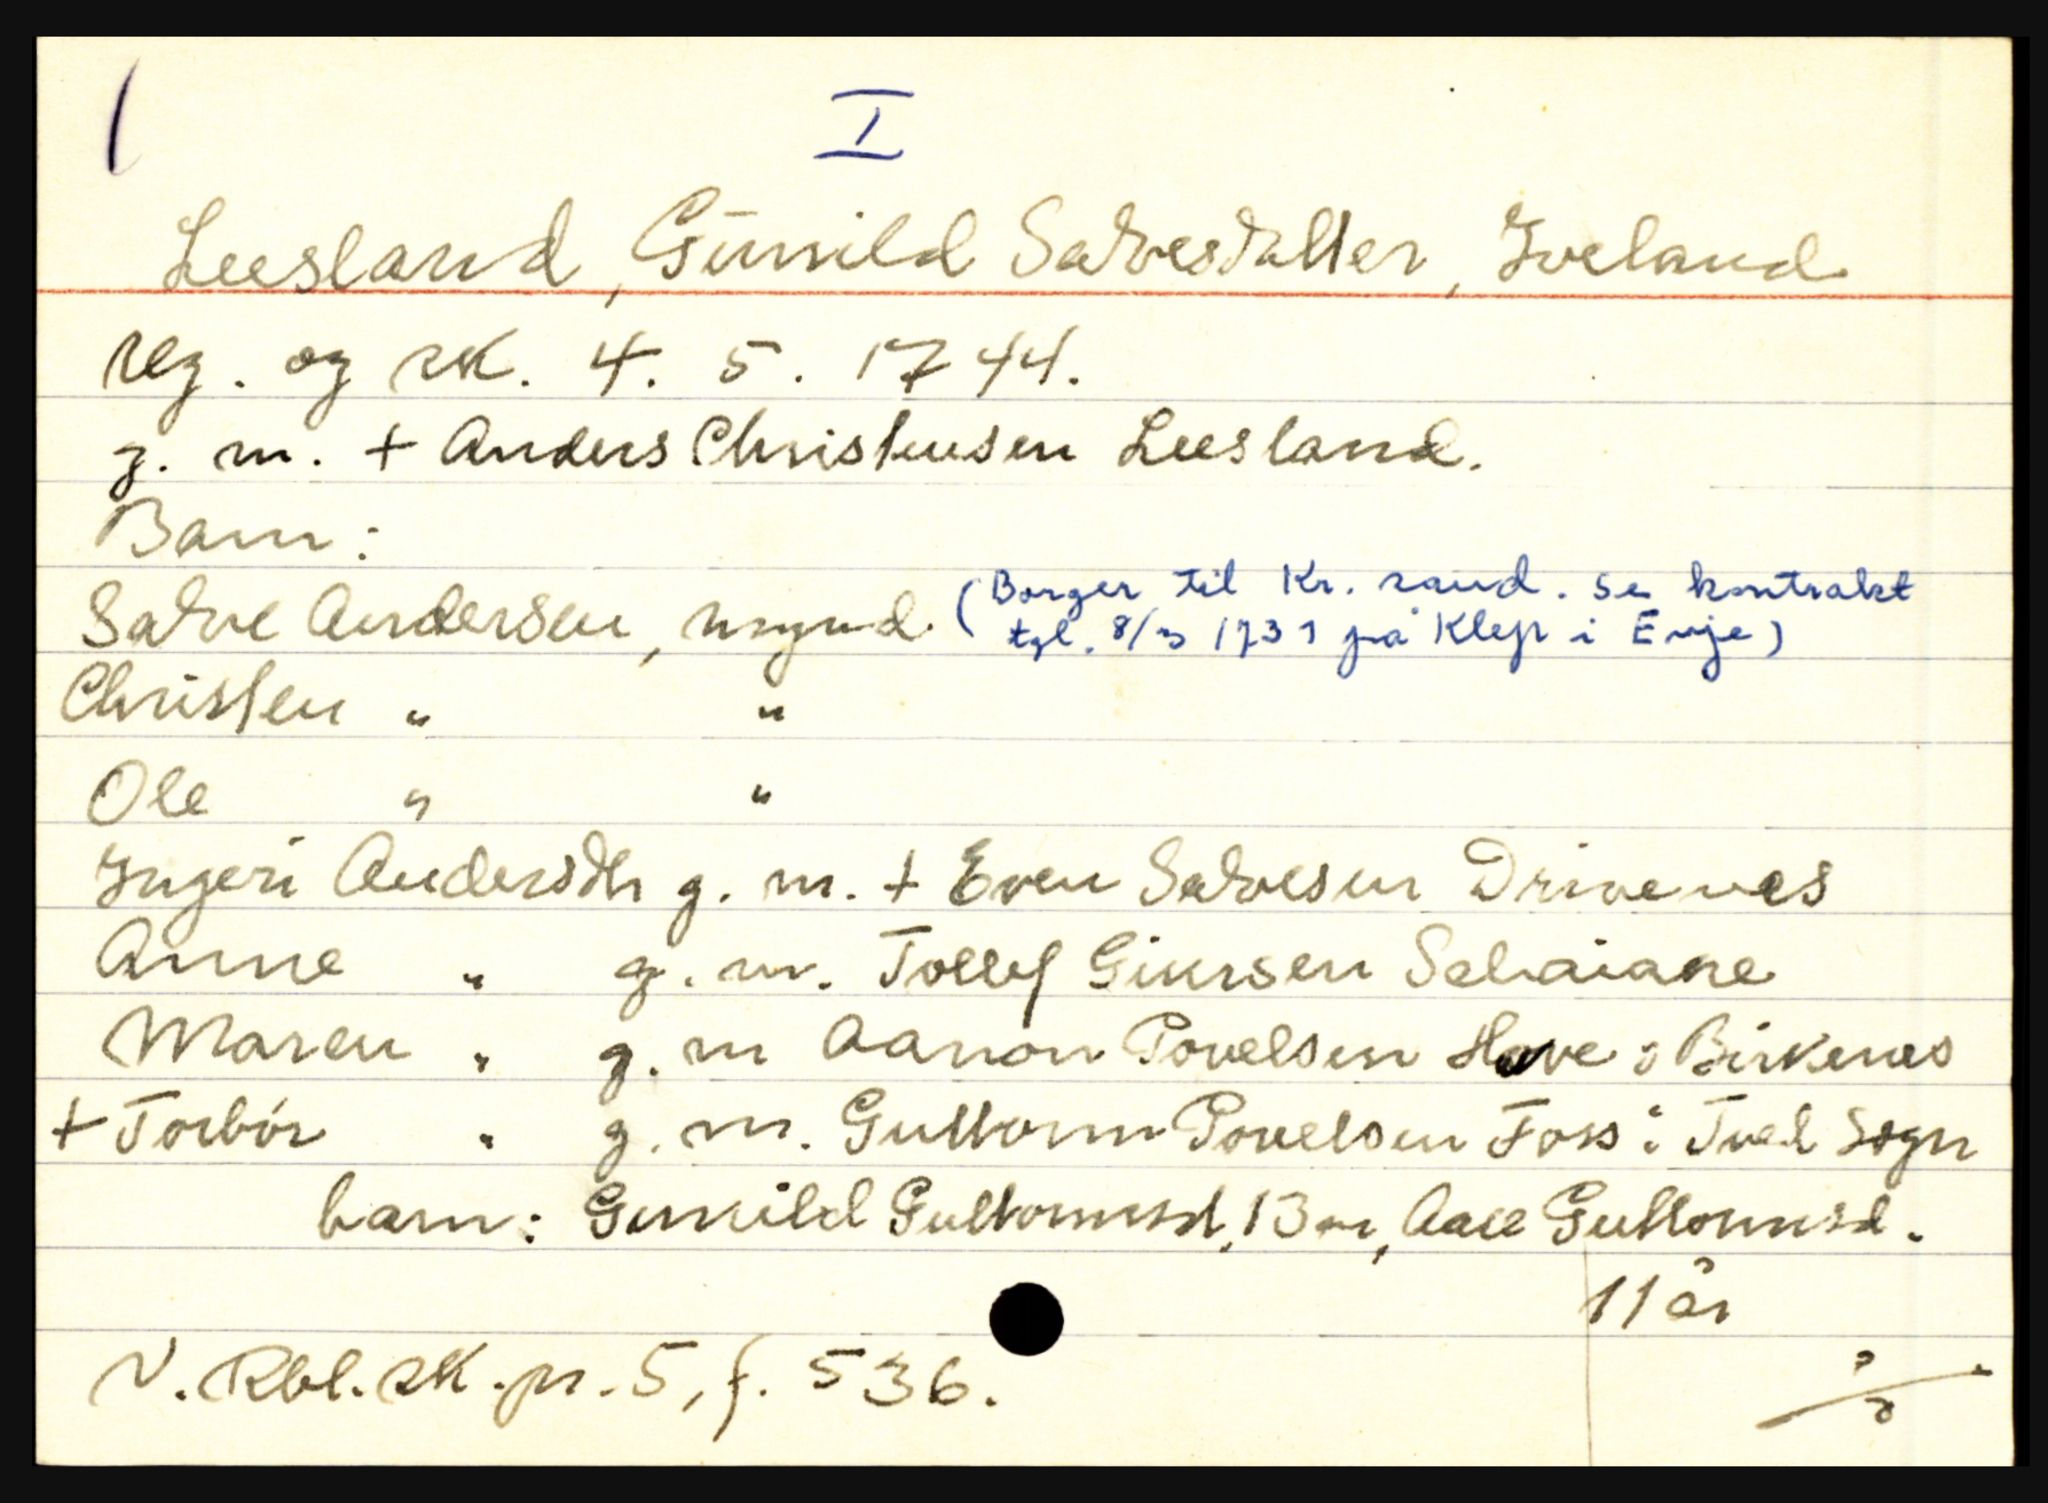 I
Leesland, Gunild Salvesdatter, Iveland
reg. og sk. 4. 5. 1744.
g. m. + Anders Christensen Leesland.
Barn:
Salve Andersen, mynd. (Borger til Kr. sand. se kontrakt
tgl. 8/3 1731 på Klep i Evje)
Christen " "
Ole " "
Ingeri Andersdtr g. m. + Even Salvesen Drivenes
Anne " g. m. Tollef Giursen
Maren " g. m Aanon Povelsen Hove i Birkenes
+ Torbør " g. m. Guttorm Povelsen Foss i Tved Sogn
barn: Gunild Guttormsd, 13 år, Aase Guttormsd.
11 år
N. Rbl. sk. pr. 5, f. 536.